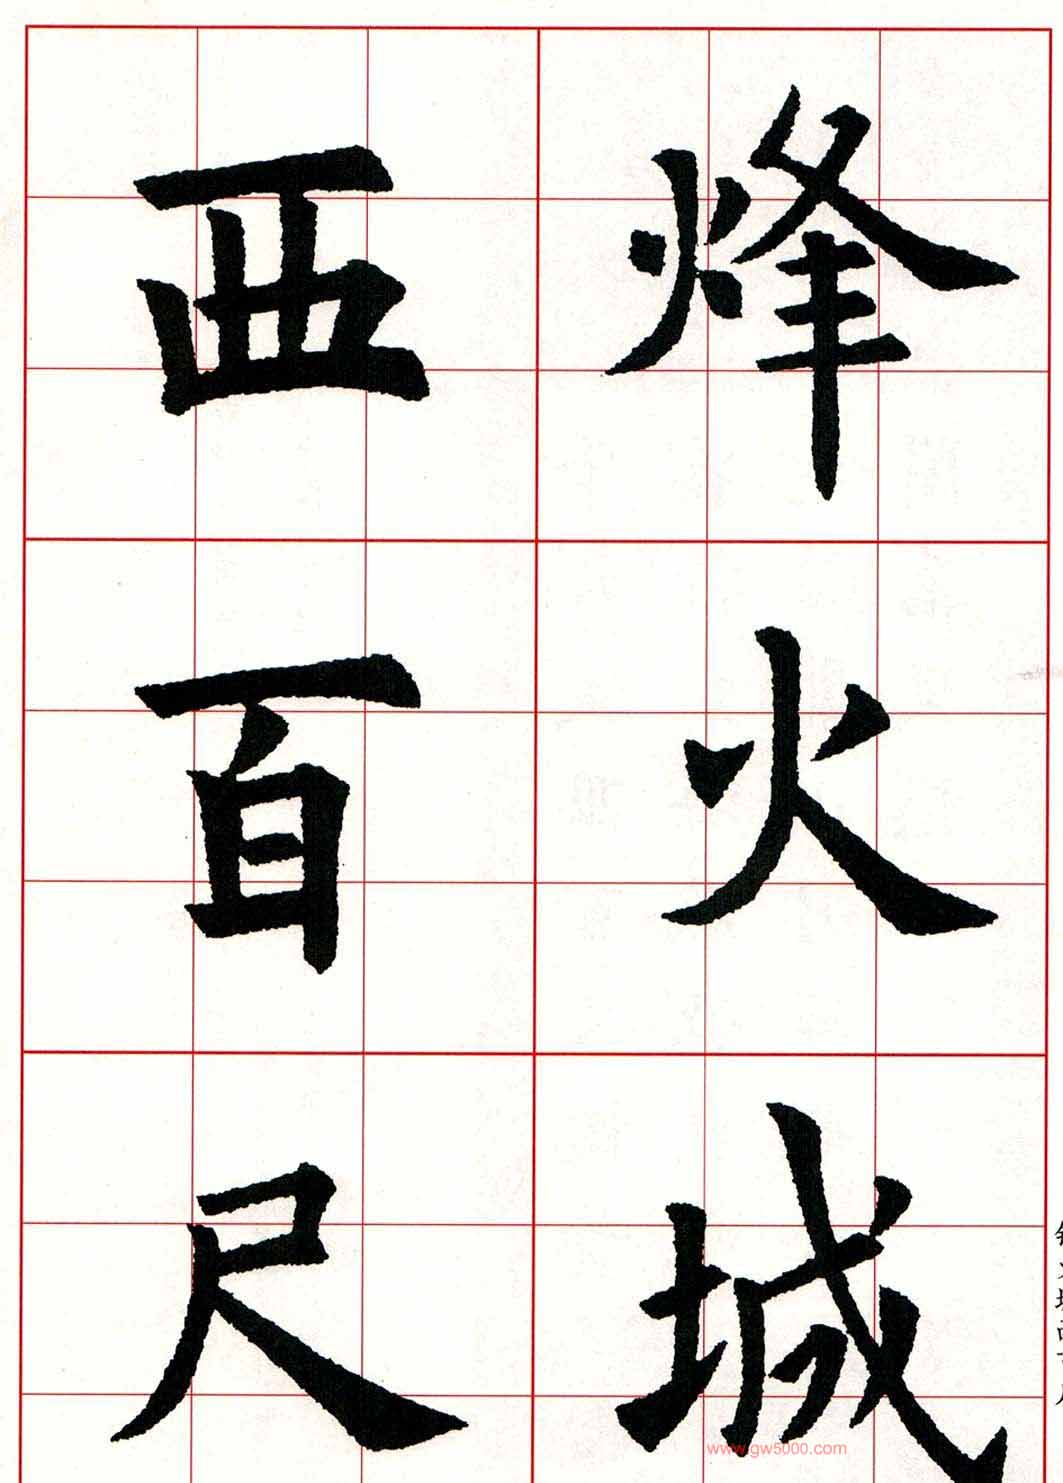 烽火城
西百尺
www.gw5000.com